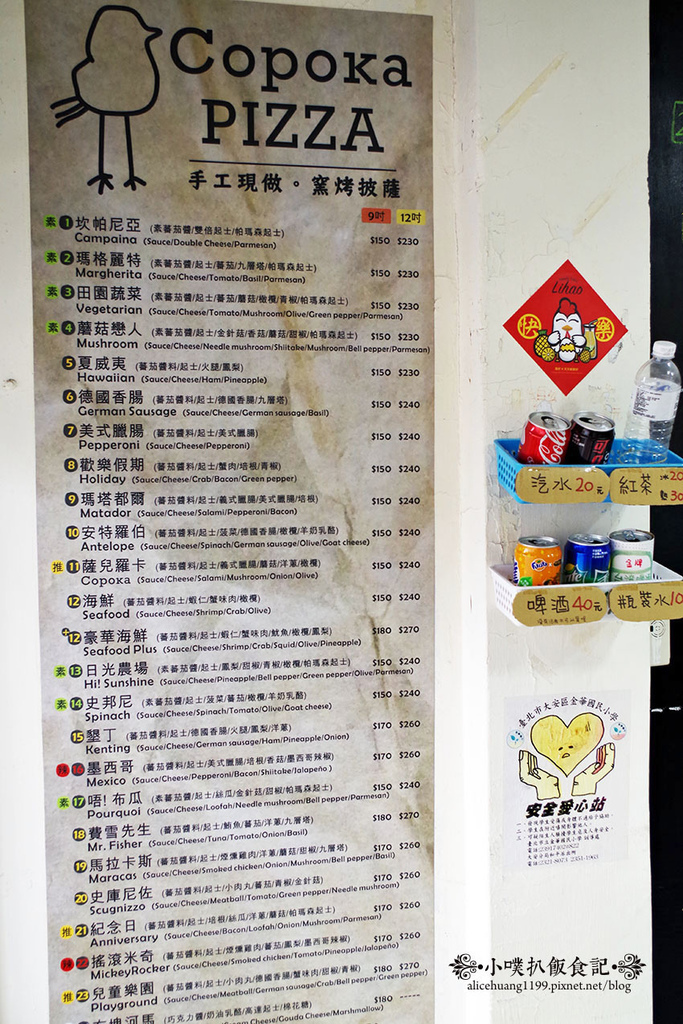 Copoka
PIZZA
手工現做。窯烤披薩
9吋 12吋
素 1 坎帕尼亞 (素蕃茄醬/雙倍起士/帕瑪森起士)
Campaina (Sauce/Double Cheese/Parmesan) $150 $230
素 2 瑪格麗特 (素蕃茄醬/起士/蕃茄/九層塔/帕瑪森起士)
Margherita (Sauce/Cheese/Tomato/Basil/Parmesan) $150 $230
素 3 田園蔬菜 (素蕃茄醬/起士/蕃茄/蘑菇/橄欖/青椒/帕瑪森起士)
Vegetarian (Sauce/Cheese/Tomato/Mushroom/Olive/Green pepper/Parmesan) $150 $230
素 4 蘑菇戀人 (素蕃茄醬/起士/金針菇/香菇/蘑菇/甜椒/帕瑪森起士)
Mushroom (Sauce/Cheese/Needle mushroom/Shiitake/Mushroom/Bell pepper/Parmesan) $150 $230
5 夏威夷 (蕃茄醬料/起士/火腿/鳳梨)
Hawaiian (Sauce/Cheese/Ham/Pineapple) $150 $230
6 德國香腸 (蕃茄醬料/起士/德國香腸/九層塔)
German Sausage (Sauce/Cheese/German sausage/Basil) $150 $240
7 美式臘腸 (蕃茄醬料/起士/美式臘腸)
Pepperoni (Sauce/Cheese/Pepperoni) $150 $240
8 歡樂假期 (蕃茄醬料/起士/蟹肉/培根/青椒)
Holiday (Sauce/Cheese/Crab/Bacon/Green pepper) $150 $240
9 瑪塔都爾 (蕃茄醬料/起士/義式臘腸/美式臘腸/培根)
Matador (Sauce/Cheese/Salami/Pepperoni/Bacon) $150 $240
10 安特羅伯 (蕃茄醬料/起士/菠菜/德國香腸/橄欖/羊奶乳酪)
Antelope (Sauce/Cheese/Spinach/German sausage/Olive/Goat cheese) $150 $240
推 11 薩兒羅卡 (蕃茄醬料/起士/義式臘腸/蘑菇/洋蔥/橄欖)
Copoka (Sauce/Cheese/Salami/Mushroom/Onion/Olive) $150 $240
12 海鮮 (蕃茄醬料/起士/蝦仁/蟹味肉/橄欖)
Seafood (Sauce/Cheese/Shrimp/Crab/Olive) $150 $240
+12 豪華海鮮 (蕃茄醬料/起士/蝦仁/蟹味肉/魷魚/橄欖/鳳梨)
Seafood Plus (Sauce/Cheese/Shrimp/Crab/Squid/Olive/Pineapple) $180 $270
素 13 日光農場 (素蕃茄醬/起士/鳳梨/甜椒/青椒/橄欖/帕瑪森起士)
Hi! Sunshine (Sauce/Cheese/Pineapple/Bell pepper/Green pepper/Olive/Parmesan) $150 $240
素 14 史邦尼 (素蕃茄醬/起士/菠菜/蕃茄/橄欖/羊奶乳酪)
Spinach (Sauce/Cheese/Spinach/Tomato/Olive/Goat cheese) $150 $240
15 墾丁 (蕃茄醬料/起士/德國香腸/火腿/鳳梨/洋蔥)
Kenting (Sauce/Cheese/German sausage/Ham/Pineapple/Onion) $170 $260
辣 16 墨西哥 (蕃茄醬料/起士/美式臘腸/培根/香菇/墨西哥辣椒)
Mexico (Sauce/Cheese/Pepperoni/Bacon/Shiitake/Jalapeño) $170 $260
素 17 唔!布瓜 (素蕃茄醬/起士/絲瓜/金針菇/甜椒/帕瑪森起士)
Pourquoi (Sauce/Cheese/Loofah/Needle mushroom/Bell pepper/Parmesan) $150 $240
18 費雪先生 (蕃茄醬料/起士/鮪魚/蕃茄/洋蔥/九層塔)
Mr. Fisher (Sauce/Cheese/Tuna/Tomato/Onion/Basil) $180 $270
19 馬拉卡斯 (蕃茄醬料/起士/煙燻雞肉/洋蔥/蘑菇/甜椒/九層塔)
Maracas (Sauce/Cheese/Smoked chicken/Onion/Mushroom/Bell pepper/Basil) $170 $260
20 史庫尼佐 (蕃茄醬料/起士/小肉丸/蕃茄/青椒/金針菇)
Scugnizzo (Sauce/Cheese/Meatball/Tomato/Green pepper/Needle mushroom) $170 $260
推 21 紀念日 (蕃茄醬料/起士/培根/絲瓜/洋蔥/蘑菇/帕瑪森起士)
Anniversary (Sauce/Cheese/Bacon/Loofah/Onion/Mushroom/Parmesan) $170 $260
辣 22 搖滾米奇 (蕃茄醬料/起士/煙燻雞肉/蕃茄/鳳梨/墨西哥辣椒)
MickeyRocker (Sauce/Cheese/Smoked chicken/Tomato/Pineapple/Jalapeño) $170 $260
推 23 兒童樂園 (蕃茄醬料/起士/小肉丸/德國香腸/蟹味肉/甜椒/青椒)
Playground (Sauce/Cheese/Meatball/German sausage/Crab/Bell pepper/Green pepper) $180 $270
河馬 (巧克力醬/奶油乳酪/高達起士/棉花糖) $180 -----
Cream cheese/Gouda Cheese/Marshmallow)
Lihao
快 樂
Coca
Fanta
金牌
汽水20元
紅茶 冰20
熱30
啤酒40元
瓶裝水10
臺北市大安區金華國民小學
安全愛心站
小噗扒飯食記
alicehuang1199.pixnet.net/blog